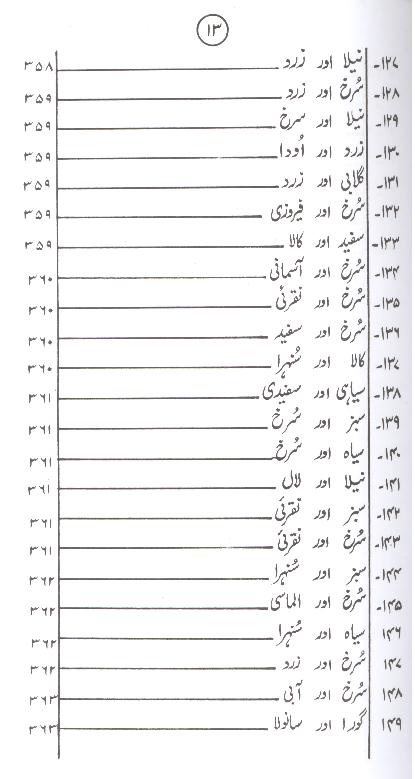 ۱۳
۱۲۷۔ نیلا اور زرد ۳۵۸
۱۲۸۔ سُرخ اور زرد ۳۵۹
۱۲۹۔ نیلا اور سرخ ۳۵۹
۱۳۰۔ زرد اور اُودا ۳۵۹
۱۳۱۔ گلابی اور زرد ۳۵۹
۱۳۲۔ سُرخ اور فیروزی ۳۵۹
۱۳۳۔ سفید اور کالا ۳۵۹
۱۳۴۔ سُرخ اور آسمانی ۳۶۰
۱۳۵۔ سُرخ اور نقرئی ۳۶۰
۱۳۶۔ سُرخ اور سفید ۳۶۰
۱۳۷۔ کالا اور سُنہرا ۳۶۰
۱۳۸۔ سیاہی اور سفیدی ۳۶۱
۱۳۹۔ سبز اور سُرخ ۳۶۱
۱۴۰۔ سیاہ اور سُرخ ۳۶۱
۱۴۱۔ نیلا اور لال ۳۶۱
۱۴۲۔ سبز اور نقرئی ۳۶۱
۱۴۳۔ سُرخ اور نقرئی ۳۶۱
۱۴۴۔ سبز اور سُنہرا ۳۶۲
۱۴۵۔ سُرخ اور الماسی ۳۶۲
۱۴۶ سیاہ اور سُنہرا ۳۶۲
۱۴۷ سُرخ اور زرد ۳۶۲
۱۴۸ سُرخ اور آبی ۳۶۳
۱۴۹ گورا اور سانولا ۳۶۳